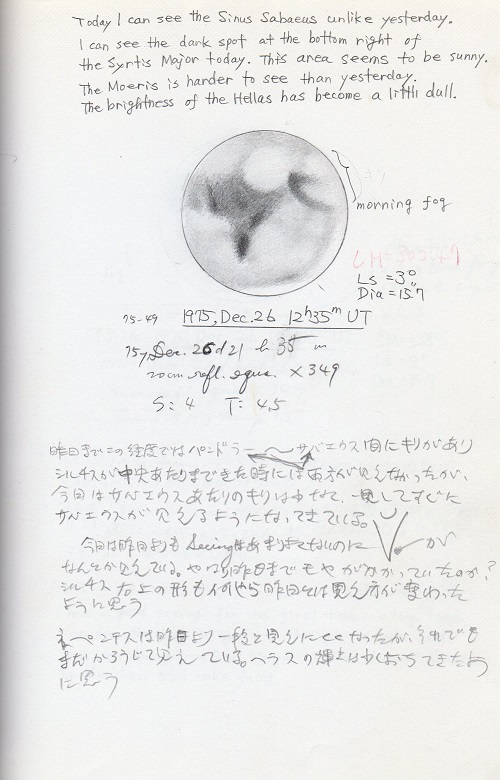 Today I can see the Sinus Sabaeus unlike yesterday.
I can see the dark spot at the bottom right of
the Syrtis Major today. This area seems to be sunny.
The Moeris is harder to see than yesterday.
The brightness of the Hellas has become a little dull.
morning fog
Ls = 3°
Dia = 15".7
75-49 1975, Dec. 26 12h35m UT
75y, Dec. 26d 21h 35m
20cm refl. equa. ×349
S: 4 T: 4.5
昨日までこの経度ではパンドラー〜サバエウス間にキリがあり
シルチスが中央あたりまできた時には両方が見えなかったが、
今回はサバエウスあたりのきりはうすれて、一見してすぐに
サバエウスが見えるようになってきている。
今日は昨日よりもSeeingはあまりよくないのに が
なんとか見えている。やはり昨日までモヤがかかっていたのか?
シルチス右上の形も何やら昨日とは見え方が変わった
ように思う
ネペンテスは昨日より一段と見えにくくなったが、それでも
まだかろうじて見えている。ヘラスの輝きは少しおちてきたよう
に思う